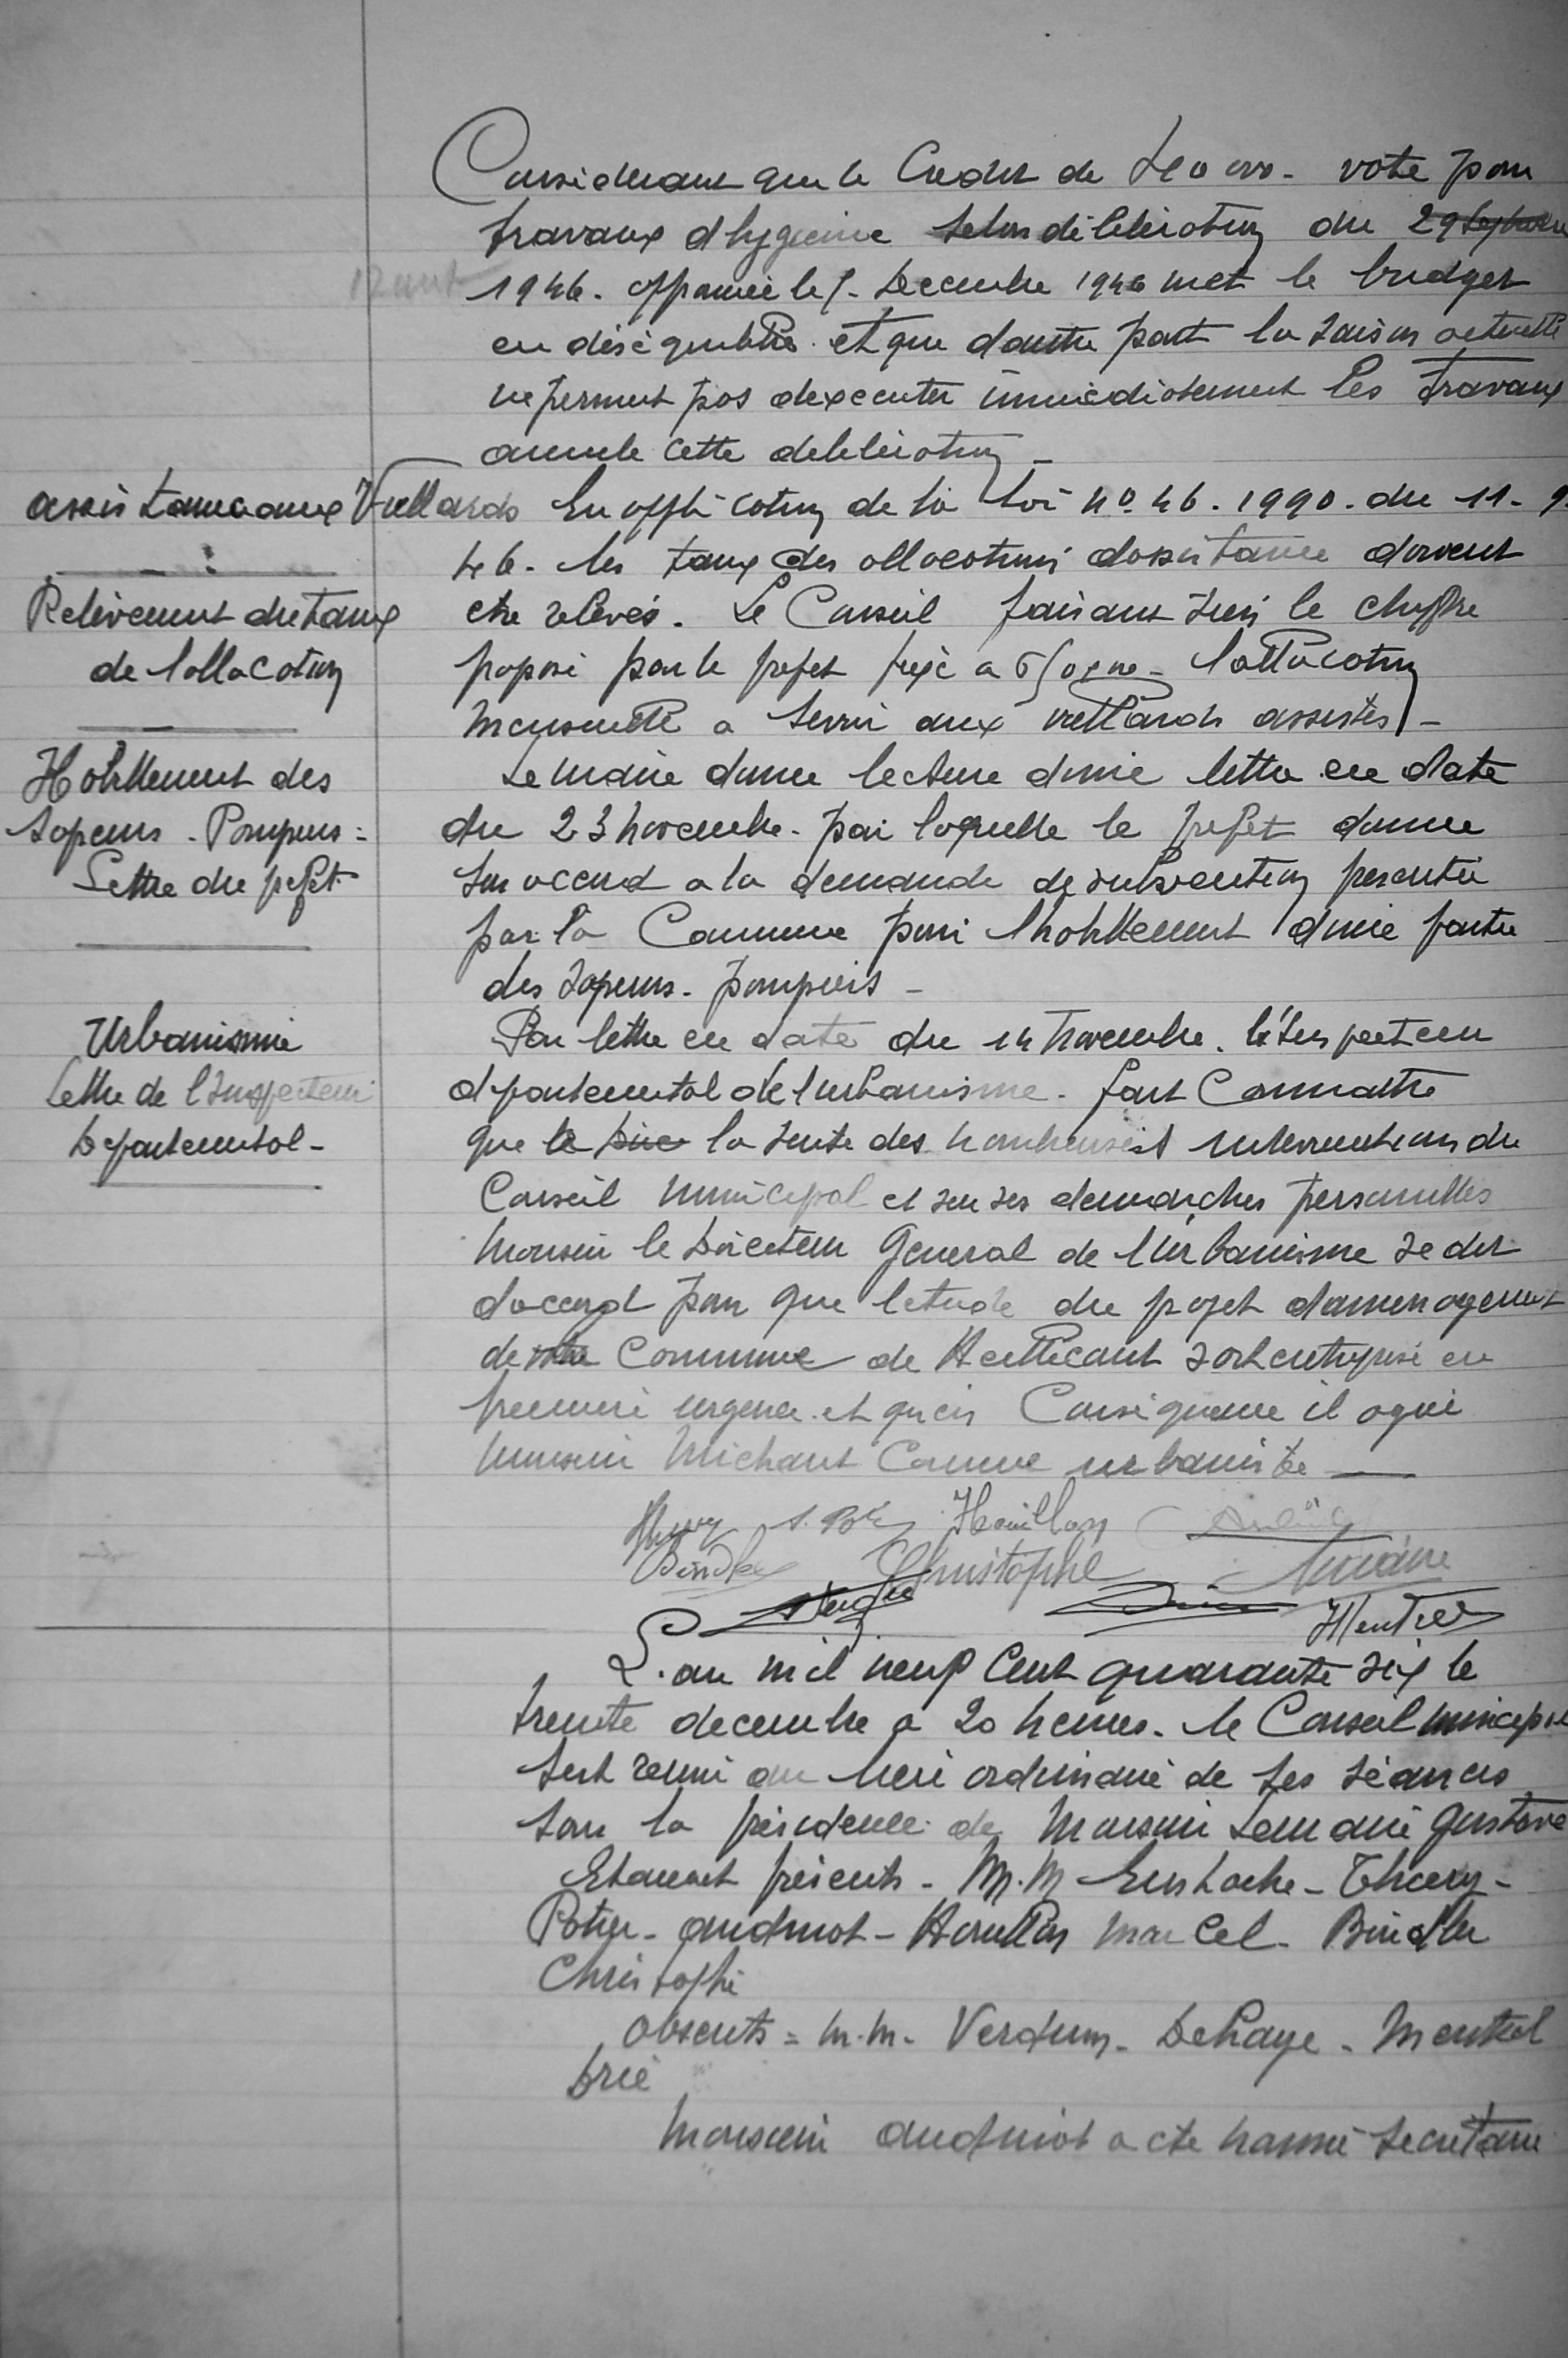 Considerant que le Credit de voté pour
travaux d hygiene selon déliberation du 29 Septembre
12 aout
1946. approuvée le 7. Decembre 1946 met le budget
en déséquilibre. et que dautre part la saison actuelle
ne permet pas dexecuter immediatement les travaux
annule cette deliberation _
assistance aux Vieillards
En application de la loi n° 46. 1990. du 11- 9.
46. les taux des allocations dassistance doivent
Relèvement du taux
etre relevés. Le Conseil faisant sien le chiffre
de lallocation
proposé par le prefet fixé a lallocation
mensuelle a servir aux vieillards assistés _
Habillement des
Le maire donne lecture dune lettre en date
Sapeurs - Pompiers =
du 23 novembre. par laquelle le prefet donne
Lettre du prefet.
son accord a la demande de subvention presentée
par la Commune pour lhabillement dune partie
des sapeurs. pompiers _
Urbanisme
Par lettre en date du 14 Novembre. l'Inspecteur
Lettre de l Inspecteur
departemental de l urbanisme. fait Connaitre
Departemental -
que le la suite des nombreuses interventions du
Conseil municipal et sur ses demarches personnelles
Monsieur le Directeur General de l Urbanisme se dit
daccord pour que letude du projet damenagement
de votre Commune de Heillecourt soit entreprise en
premiere urgence. et quen Consequence il agrée
Monsieur Michaut Comme urbaniste
Thiery Houillon
Bindler Christophe Lemaire
Mentrel
L. an mil neuf Cent quarante six le
trente decembre a 20 heures. le Conseil municipal
sest reuni au lieu ordinaire de ses séances
sous la présidence de Monsieur Lemaire Gustave
Etaient présents - M. M Eustache - Thiery -
Potier - Audinot - Houillon Marcel - Bindler
Christophe
absents = M. M. Verdun - Delaye - Mentrel
Brie
Monsieur Audinot a ete nommé secretaire